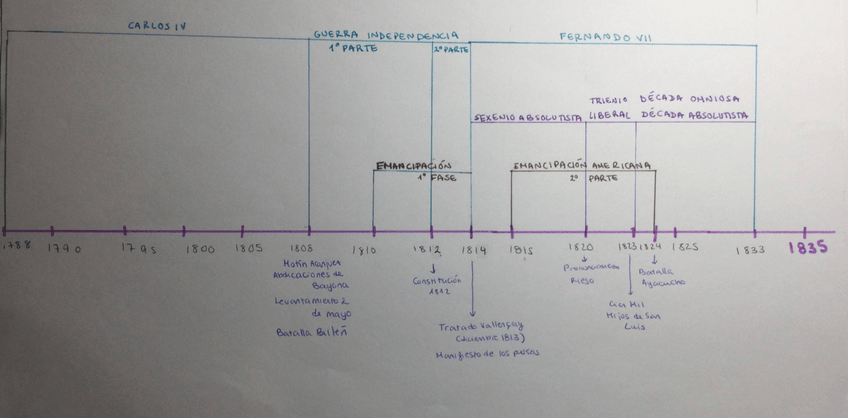 CARLOS IV
GUERRA INDEPENDENCIA
FERNANDO VII
1ª PARTE
2ª PARTE
TRIENIO
DÉCADA OMNIOSA
SEXENIO ABSOLUTISTA
LIBERAL
DÉCADA ABSOLUTISTA
EMANCIPACIÓN
1ª FASE
EMANCIPACIÓN AMERICANA
2ª PARTE
1788
1790
1795
1800
1805
1808
1810
1812
1814
1815
1820
1823
1824
1825
1833
1835
Motín
Abdicaciones de
Bayona
Levantamiento 2
de mayo
Batalla
Constitución
1812
Tratado Vallençay
(diciembre 1813)
Manifiesto de los persas
Riego
Cien Mil
Hijos de San
Luis
Batalla
Ayacucho